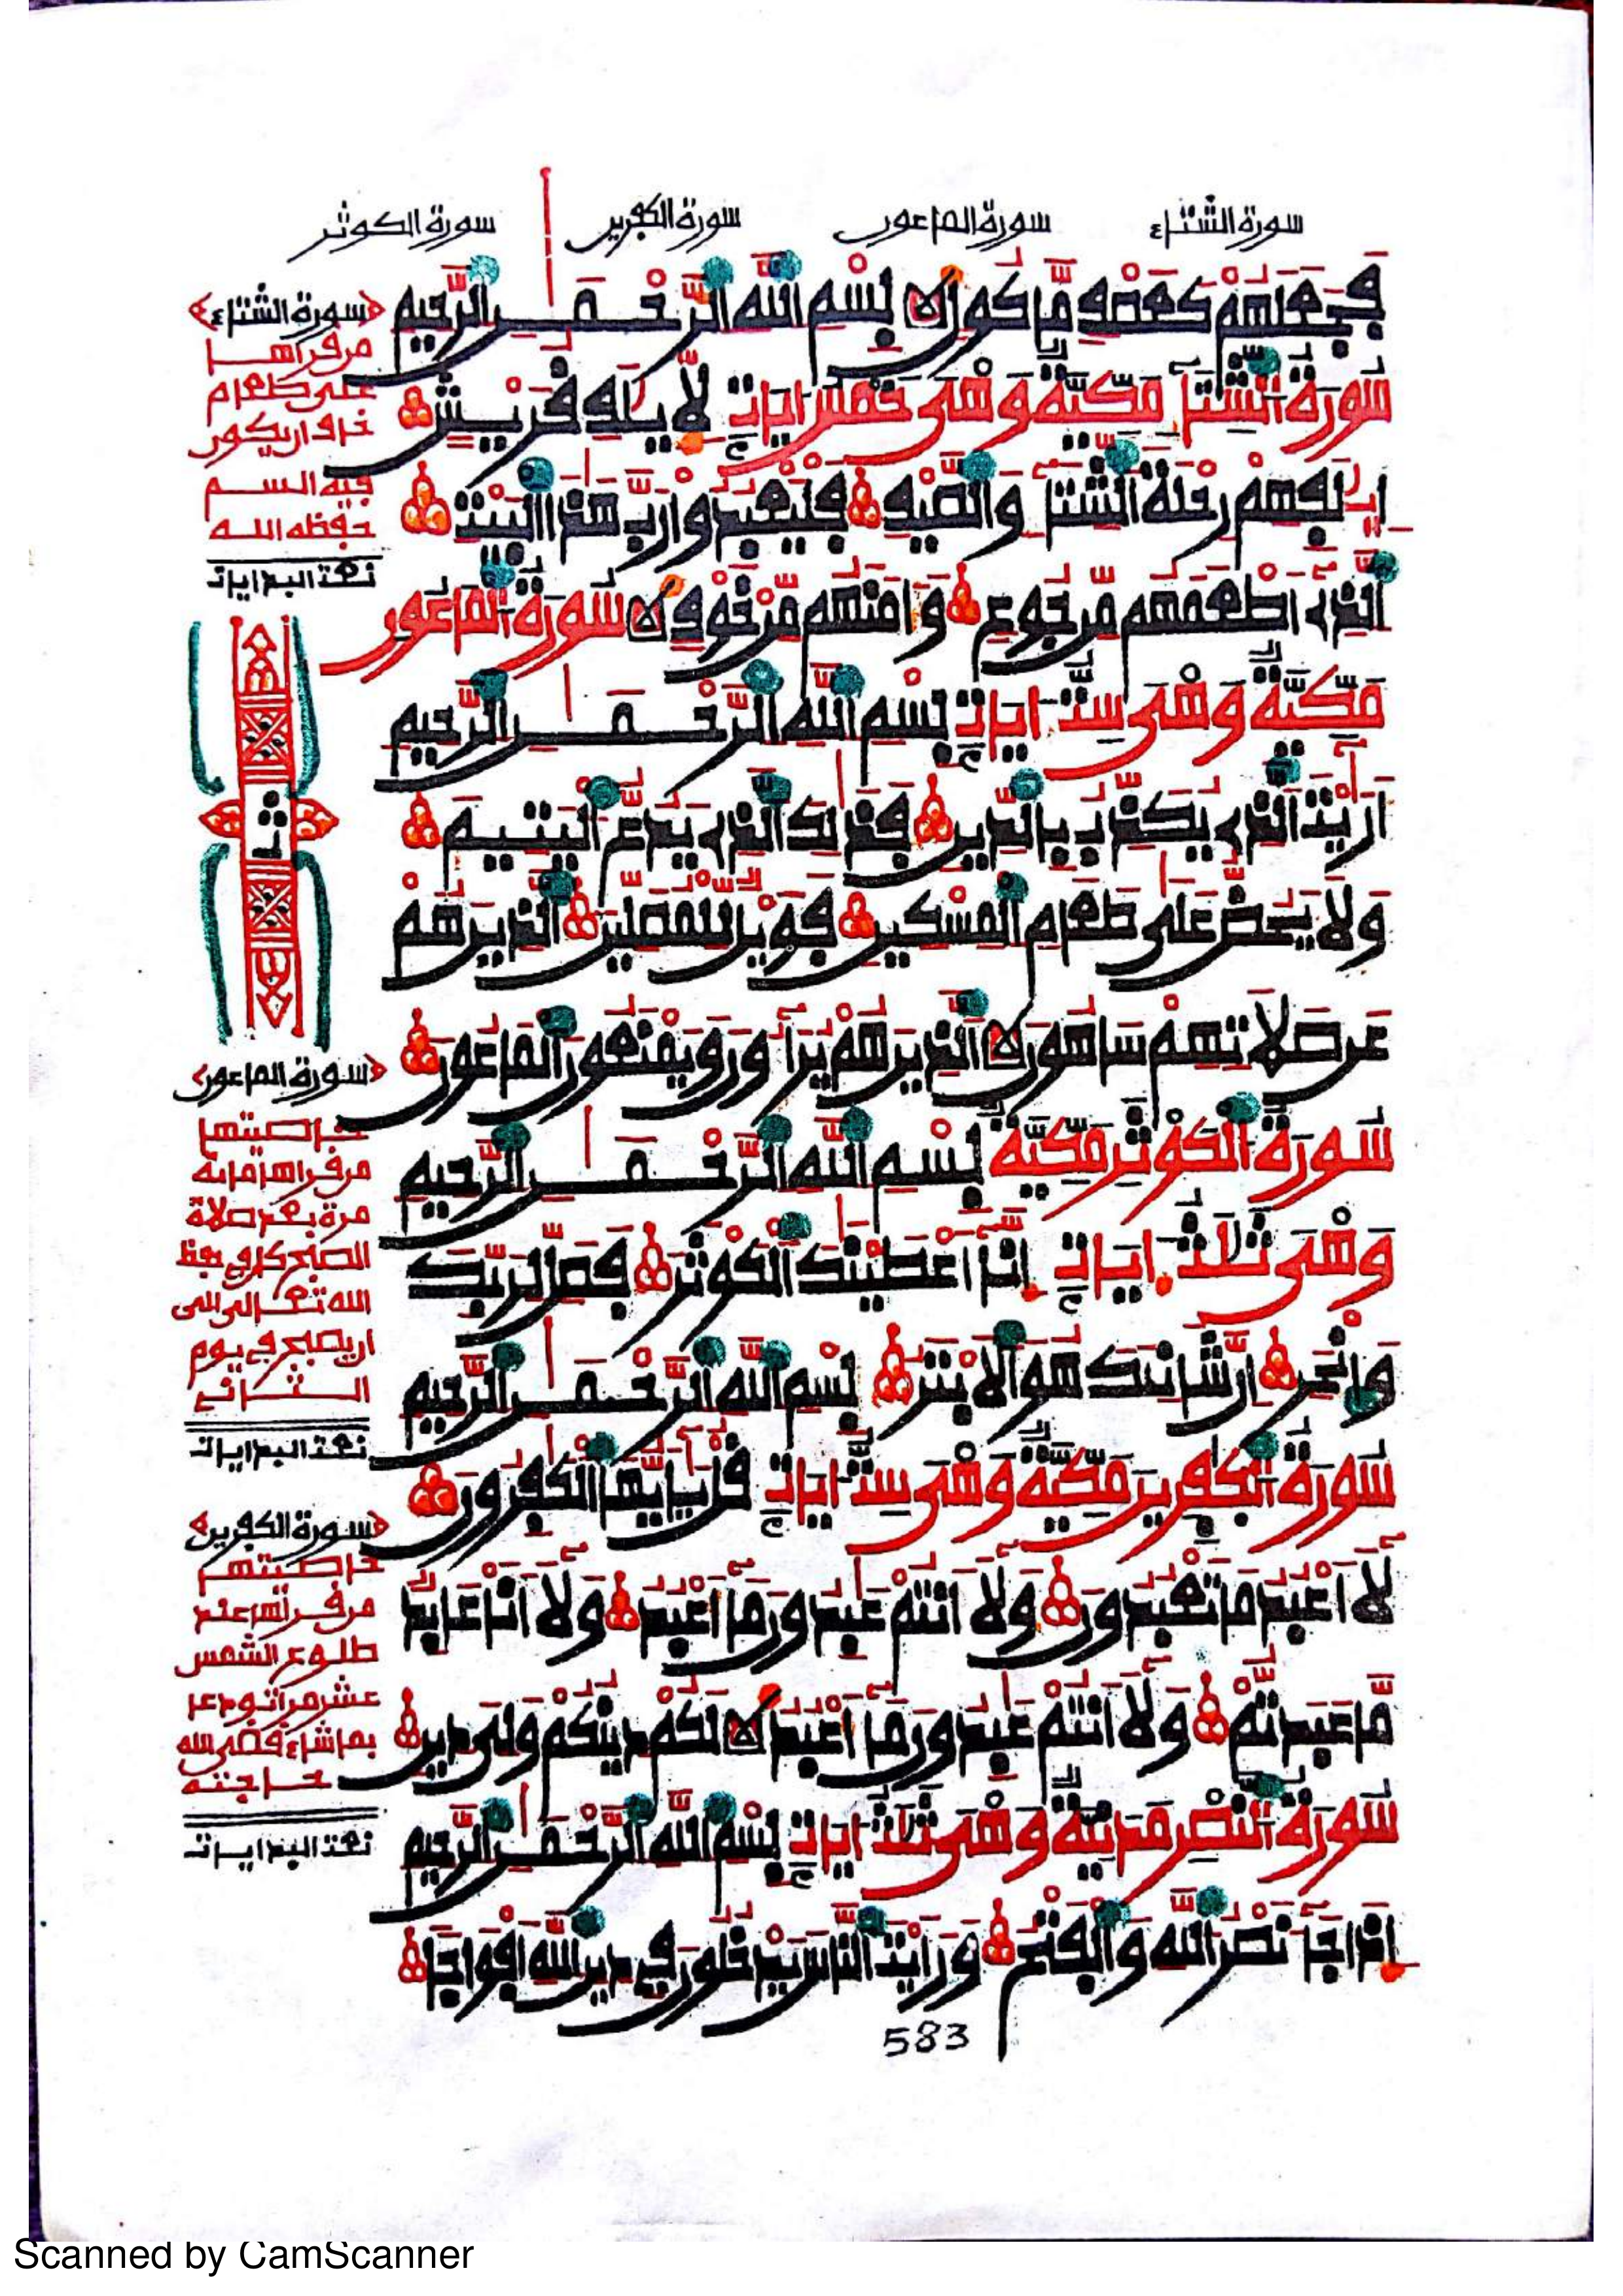 سورة الشتاء
سورة الماعون
سورة الكفرين
سورة الكوثر
فجعلهم كعصف ماكول بسم الله الرحمن الرحيم
سورة الشتا مكية وهى خمس ايات لايلف قريش
ايلفهم رحلة الشتا والصيف فليعبدوا رب هذا البيت
الذى اطعمهم من جوع وامنهم من خوف سورة الماعون
مكية وهى ست ايات بسم الله الرحمن الرحيم
اريت الذى يكذب بالدين فذلك الذى يدع اليتيم
ولا يحض على طعام المسكين فويل للمصلين الذين هم
عن صلاتهم ساهون الذين هم يراءون ويمنعون الماعون
سورة الكوثر مكية بسم الله الرحمن الرحيم
وهى ثلث ايات انا اعطينك الكوثر فصل لربك
وانحر ان شانئك هو الابتر بسم الله الرحمن الرحيم
سورة الكفرين مكية وهى ست ايات قل يايها الكفرون
لا اعبد ما تعبدون ولا انتم عبدون ما اعبد ولا انا عابد
ما عبدتم ولا انتم عبدون ما اعبد لكم دينكم ولى دين
سورة النصر مدنية وهى ثلث ايات بسم الله الرحمن الرحيم
اذا جا نصر الله والفتح ورايت الناس يدخلون فى دين الله افواجا
583
سورة الشتاء
من قراها
على طعام
خاف ان يكون
فيه السم
حفظه الله
نعت البدايات
سورة الماعون
خاصيتها
من قراها مائة
مرة بعد صلاة
الصبح كان فى حفظ
الله تعالى الى
ان يصبح فى يوم
الثانى
نعت البدايات
سورة الكفرين
خاصيتها
من قراها عند
طلوع الشمس
عشر مرات ودعا
بما شاء قضى الله
حاجته
نعت البدايات
Scanned by CamScanner